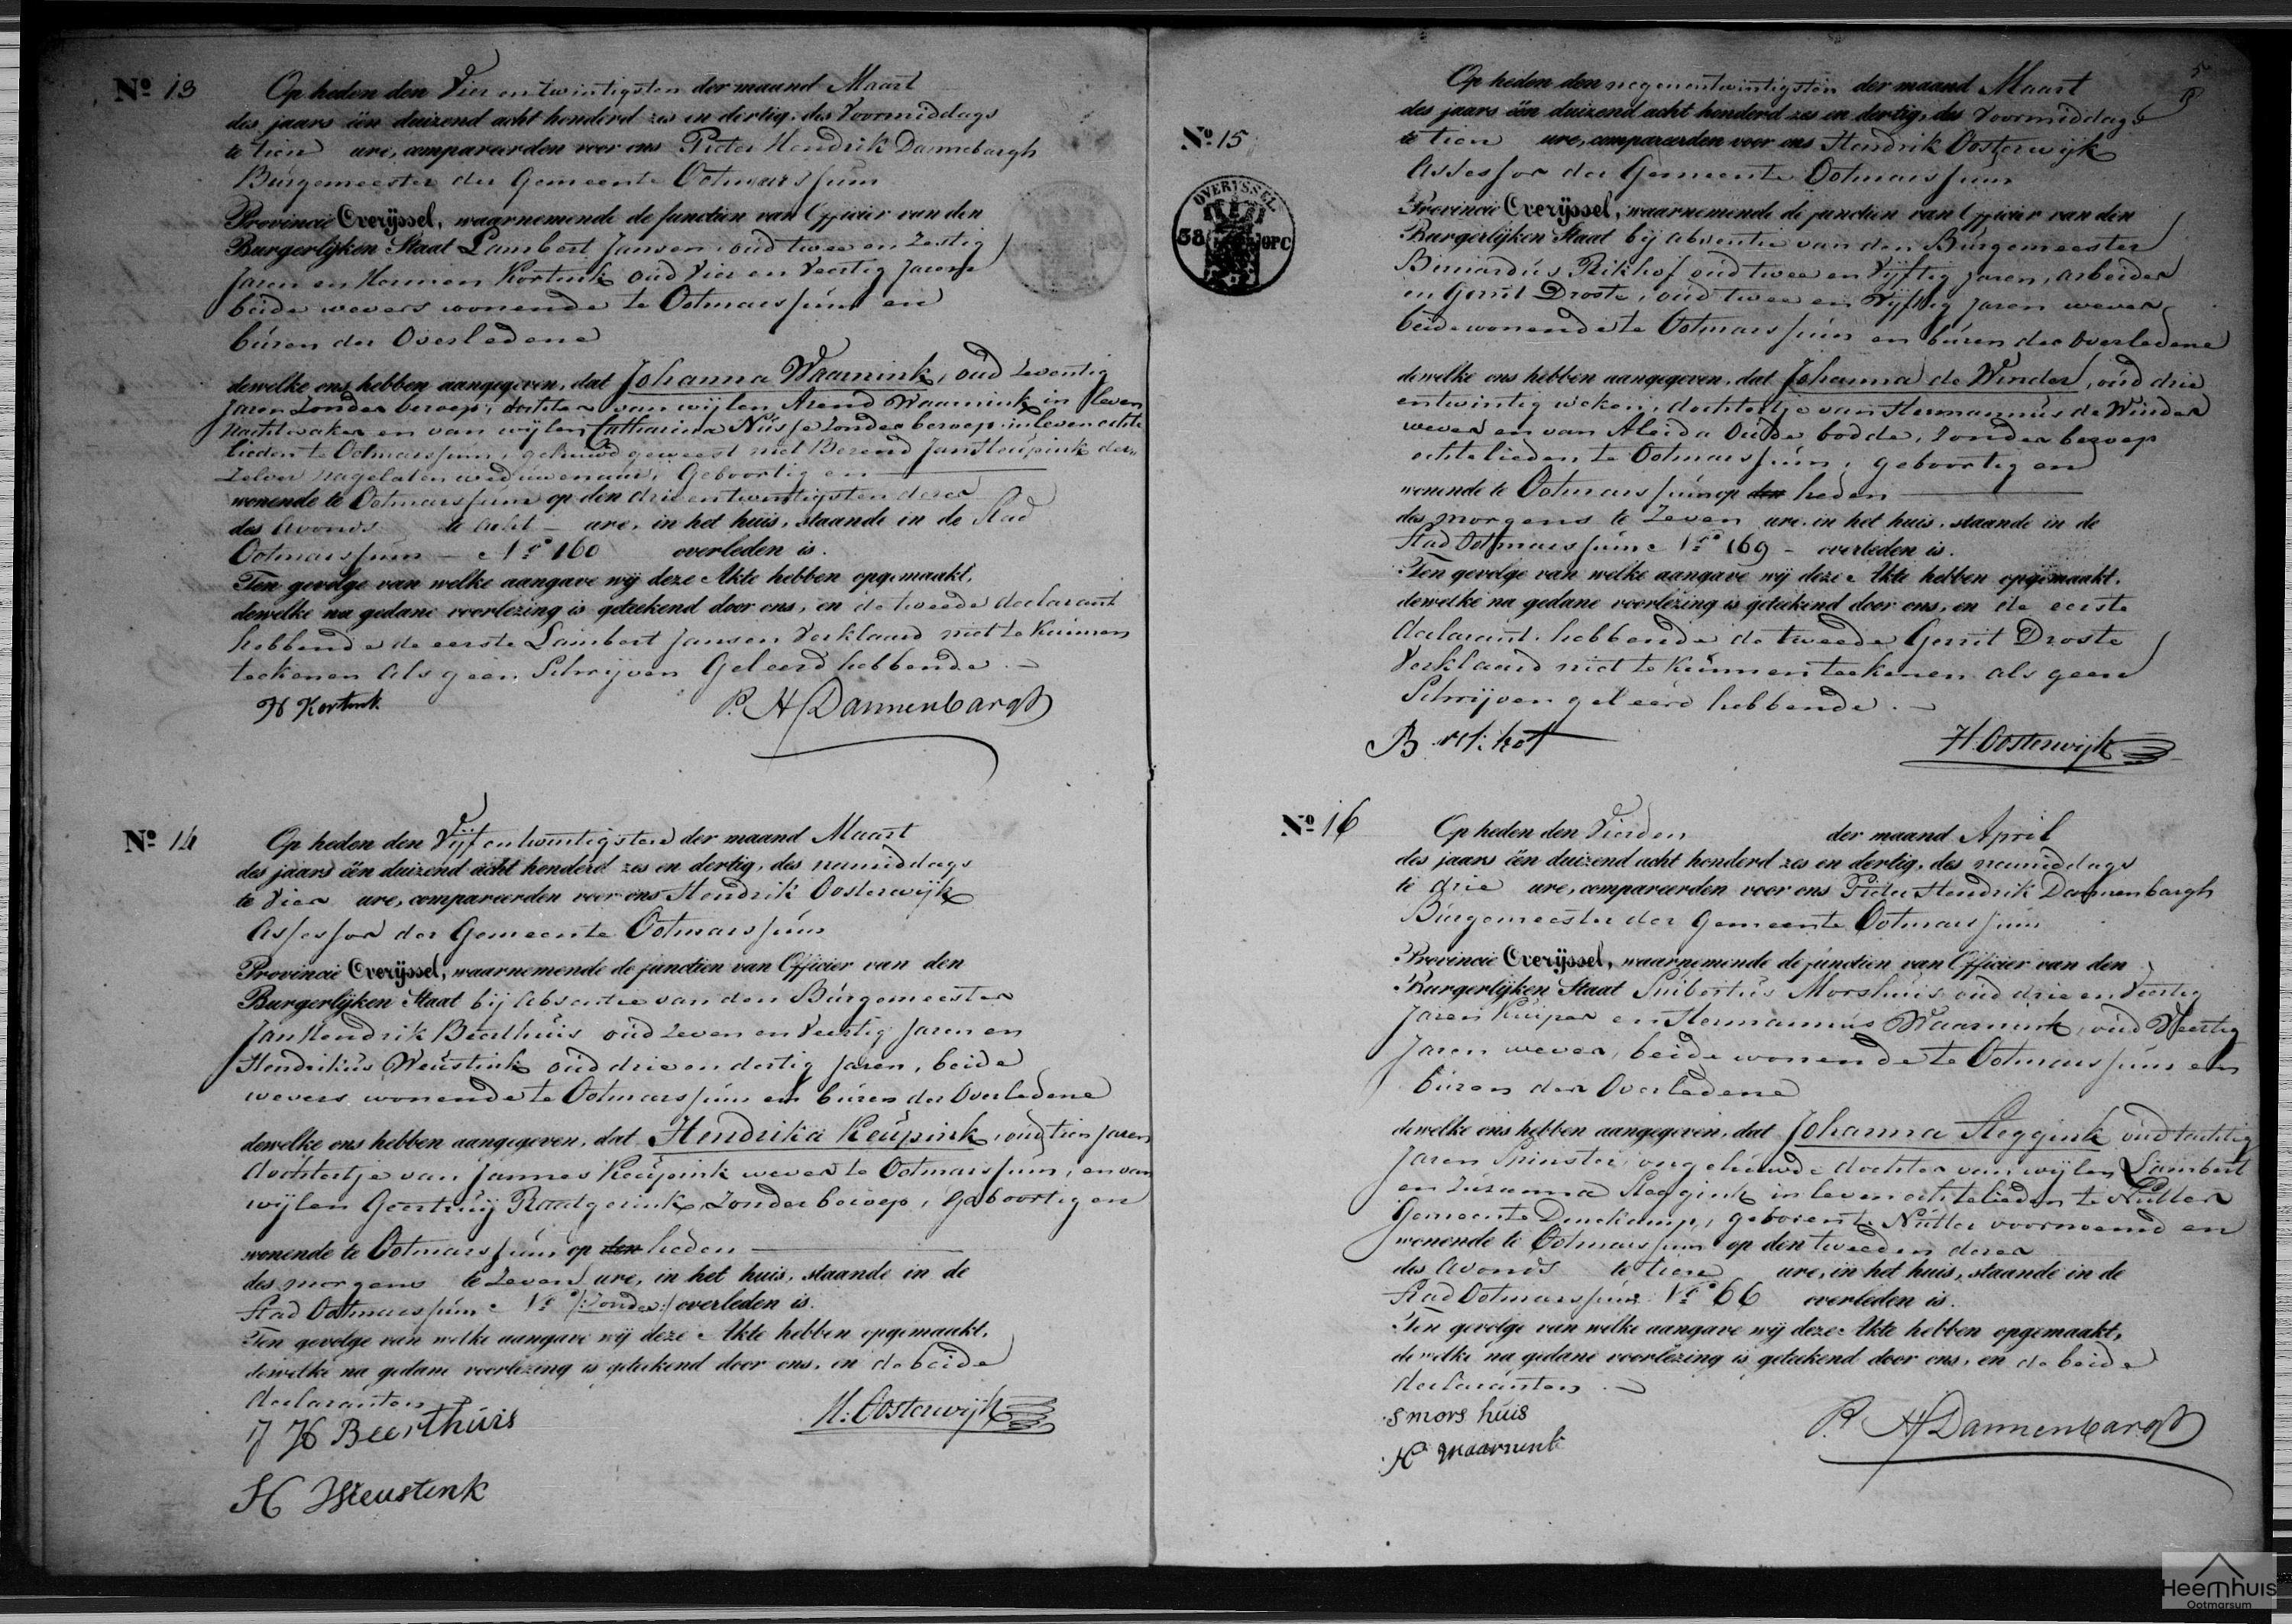 No 13
Op heden den Vier en twintigsten der maand Maart
des jaars één duizend acht honderd zes en dertig, des Voormiddags
te tien ure, compareerden voor ons Pieter Hendrik Dannebargh
Burgemeester der Gemeente Ootmarssum
Provincie Overijssel, waarnemende de functien van Officier van den
Burgerlijken Staat Lambert Jansen oud twee en Zestig
Jaren en Hermen Kortink oud Vier en Veertig Jaren
beide wevers wonende te Ootmarssum en
buren der Overledene
dewelke ons hebben aangegeven, dat Johanna Waarnink, oud Zeventig
Jaren Zonder beroep, dochter van wijlen Arend Waarnink in leven
Nachtwaker en van wijlen Catharina Nusse Zonder beroep in leven echte
lieden te Ootmarssum, gehuwd geweest met Berend Jan Keupink des
Zelver nagelaten weduwenaar, Geboortig en
wonende te Ootmarssum op den drie entwintigsten dezer
des Avonds te acht ure, in het huis, staande in de Stad
Ootmarssum No 160 overleden is.
Ten gevolge van welke aangave wij deze Akte hebben opgemaakt,
dewelke na gedane voorlezing is geteekend door ons, en de tweede declarant
hebbende de eerste Lambert Jansen Verklaard niet te Kunnen
teekenen als geen Schrijven Geleerd hebbende.
H Kortink P. H Dannenbargh
No 14
Op heden den Vijf entwintigsten der maand Maart
des jaars één duizend acht honderd zes en dertig, des namiddags
te Vier ure, compareerden voor ons Hendrik Oosterwijk
Assessor der Gemeente Ootmarssum
Provincie Overijssel, waarnemende de functien van Officier van den
Burgerlijken Staat bij Absentie van den Burgemeester
Jan Hendrik Beerthuis oud Zeven en Veertig Jaren en
Hendrikus Weustink oud drie en dertig Jaren, beide
wevers wonende te Ootmarssum en buren der Overledene
dewelke ons hebben aangegeven, dat Hendrika Keupink, oud tien Jaren
dochtertje van Jannes Keupink wever te Ootmarssum, en van
wijlen Geertruij Raatgerink Zonder beroep, Geboortig en
wonende te Ootmarssum op den heden
des morgens te Zeven ure, in het huis, staande in de
Stad Ootmarssum No /:Zonder:/ overleden is.
Ten gevolge van welke aangave wij deze Akte hebben opgemaakt,
dewelke na gedane voorlezing is geteekend door ons, en de beide
declaranten
J H Beerthuis H: Oosterwijk
H Weustenk
5
No 15
OVERYSSEL
38 OPC
Op heden den negenentwintigsten der maand Maart
des jaars één duizend acht honderd zes en dertig, des Voormiddags
te tien ure, compareerden voor ons Hendrik Oosterwijk
Assessor der Gemeente Ootmarssum
Provincie Overijssel, waarnemende de functien van Officier van den
Burgerlijken Staat bij absentie van den Burgemeester
Bernardus Rikhof oud twee en Vijftig Jaren, arbeider
en Gerrit Droste, oud twee en Vijftig Jaren wever
beide wonende te Ootmarssum en buren der Overledene
dewelke ons hebben aangegeven, dat Johanna de Winder, oud drie
entwintig weken, dochtertje van Hermannus de Winder
wever en van Aleida Oude bodde, Zonder beroep
echtelieden te Ootmarssum, geboortig en
wonende te Ootmarssum op den heden
des morgens te Zeven ure, in het huis, staande in de
Stad Ootmarssum No 169 overleden is.
Ten gevolge van welke aangave wij deze Akte hebben opgemaakt,
dewelke na gedane voorlezing is geteekend door ons, en de eerste
declarant, hebbende de tweede Gerrit Droste
Verklaard niet te Kunnen teekenen als geen
Schrijven geleerd hebbende.
B rik hof H. Oosterwijk
No 16
Op heden den Vierden der maand April
des jaars één duizend acht honderd zes en dertig, des namiddags
te drie ure, compareerden voor ons Pieter Hendrik Dannenbargh
Burgemeester der Gemeente Ootmarssum
Provincie Overijssel, waarnemende de functien van Officier van den
Burgerlijken Staat Suibertus Morshuis oud drie en Veertig
Jaren Kuiper en Hermannus Waarnink, oud Veertig
Jaren wever, beide wonende te Ootmarssum en
buren der Overledene
dewelke ons hebben aangegeven, dat Johanna Steggink oud tachtig
Jaren Spinster, ongehuwde dochter van wijlen Lambert
en Zuzanna Steggink in leven echtelieden te Nutter
Gemeente Denekamp, geboren te Nutter voornoemd en
wonende te Ootmarssum op den tweeden dezer
des Avonds te tien ure, in het huis, staande in de
Stad Ootmarssum No 66 overleden is.
Ten gevolge van welke aangave wij deze Akte hebben opgemaakt,
dewelke na gedane voorlezing is geteekend door ons, en de beide
declaranten.
S mors huis
H Waarnink P. H Dannenbargh
Heemhuis
Ootmarsum